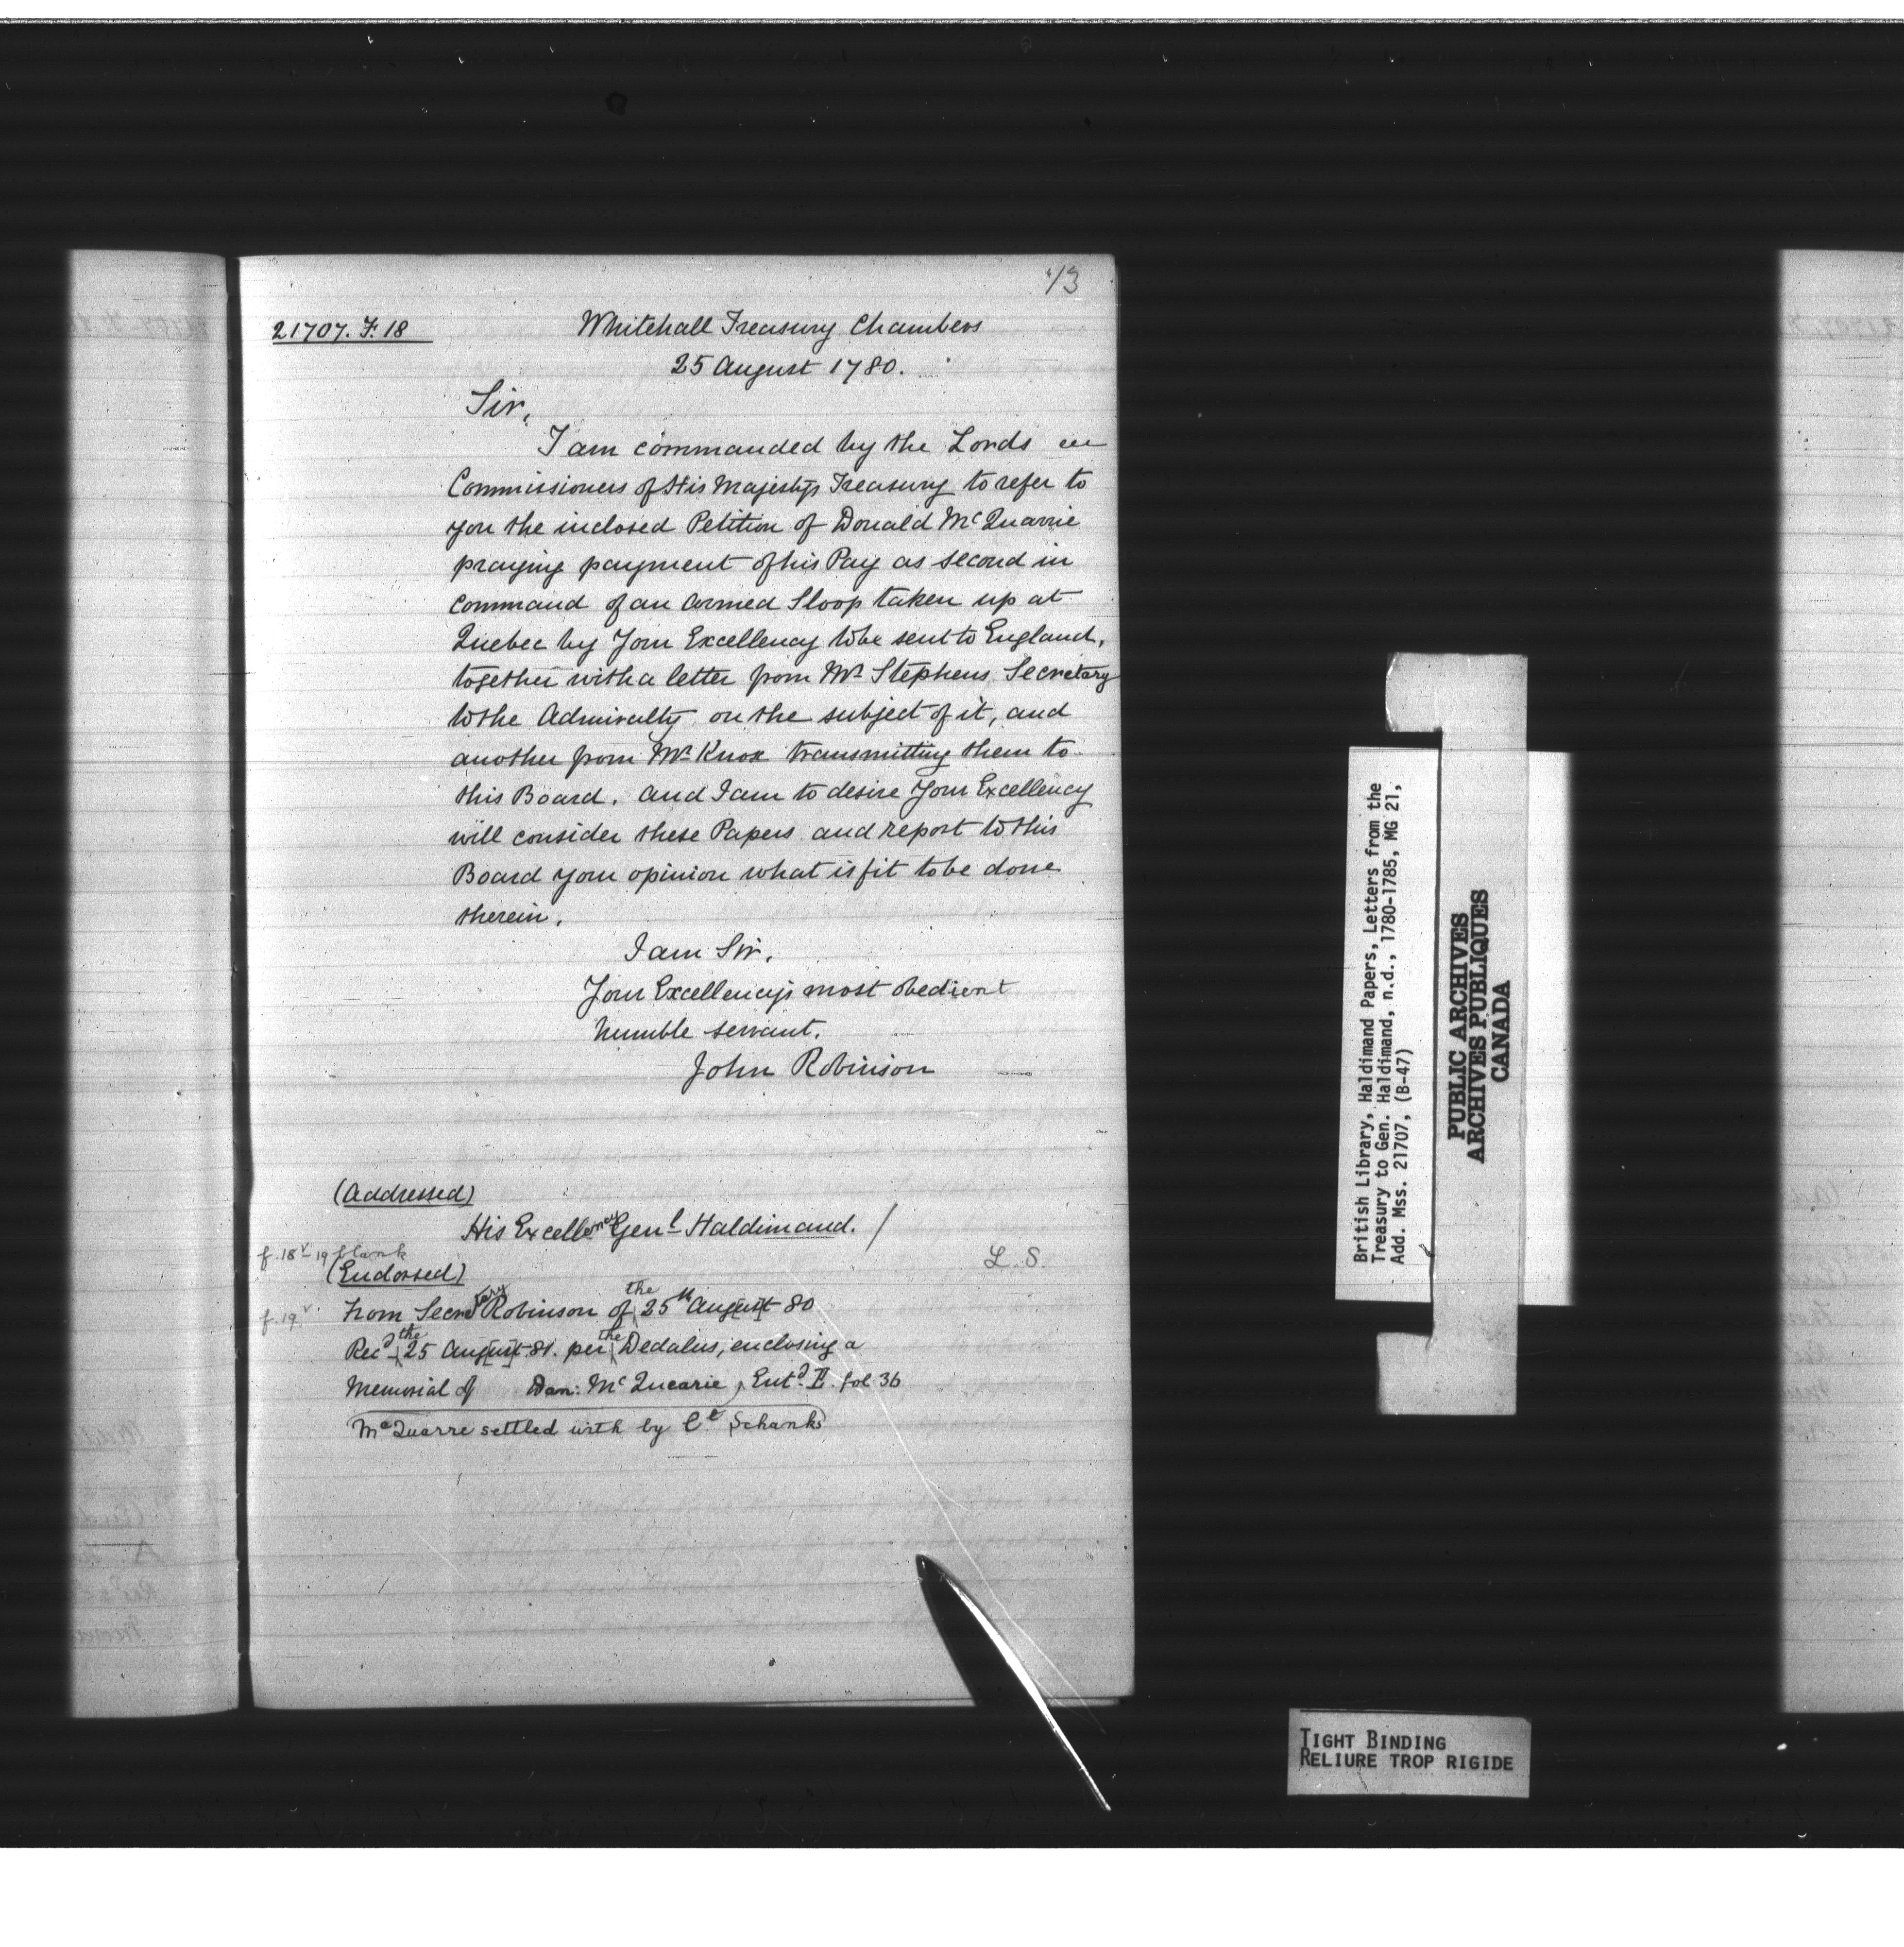 13
21707. F. 18
Whitehall Treasury Chambers
25 August 1780.
Sir,
I am commanded by the Lords
Commissioners of His Majesty's Treasury to refer to
you the inclosed Petition of Donald McQuarrie
praying payment of his Pay as second in
command of an armed Sloop taken up at
Quebec by Your Excellency to be sent to England,
together with a letter from Mr Stephens Secretary
to the Admiralty on the subject of it, and
another from Mr Knox transmitting them to
this Board. and I am to desire Your Excellency
will consider these Papers and report to this
Board your opinion what is fit to be done
therein.
I am Sir,
Your Excellency's most obedient
humble servant.
John Robinson
(Addressed)
His Excellency Genl Haldimand. /
f. 18v-19 blank
L. S.
(Endorsed)
f. 19v
From Secretary Robinson of the 25th August 80
Recd the 25 August 81. per the Dedalus, enclosing a
Memorial of Dan: McQuearie, Entd. fol 36
McQuarre settled with by Ct Schank
British Library, Haldimand Papers, Letters from the
Treasury to Gen. Haldimand, n.d., 1780-1785, MG 21,
Add. Mss. 21707, (B-47)
PUBLIC ARCHIVES
ARCHIVES PUBLIQUES
CANADA
TIGHT BINDING
RELIURE TROP RIGIDE